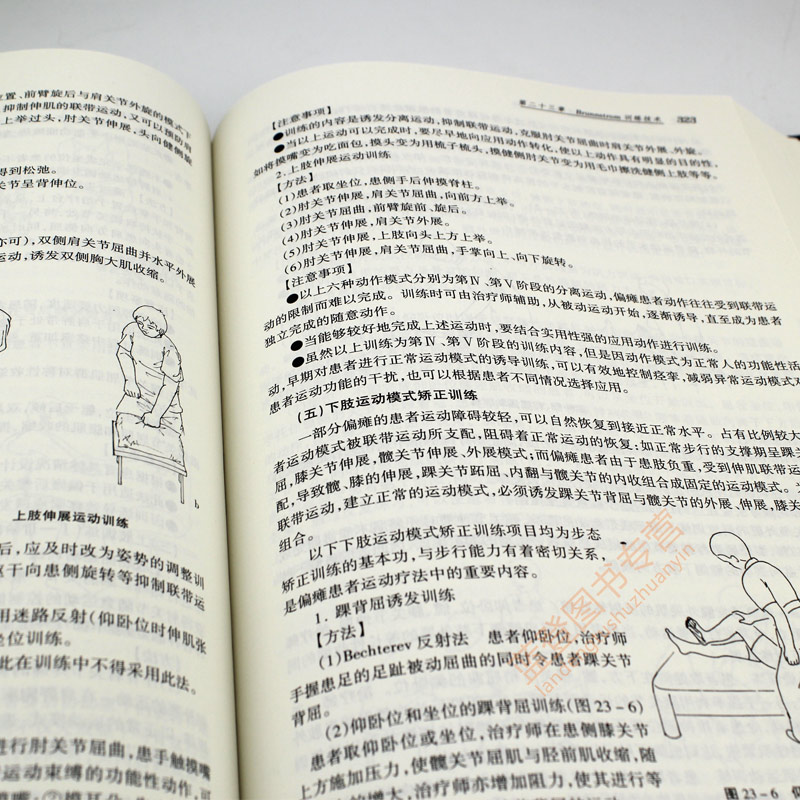 置、前臂旋后与肩关节外旋的模式下
抑制伸肌的联带运动,又可以预防肩
上举过头,肘关节伸展,头向健侧旋
得到松弛。
关节呈背伸位。
亦可),双侧肩关节屈曲并水平外展
运动,诱发双侧胸大肌收缩。
b
上肢伸展运动训练
后,应及时改为姿势的调整训
躯干向患侧旋转等抑制联带运
用迷路反射(仰卧位时伸肌张
坐位训练。
此在训练中不得采用此法。
进行肘关节屈曲,患手触摸嘴
运动束缚的功能性动作,可
第二十三章 Brunnstrom 训练技术 323
【注意事项】
●训练的内容是诱发分离运动,抑制联带运动,克服肘关节屈曲时肩关节外展、外旋。
●当以上运动可以完成时,要尽早地向应用动作转化,使以上动作具有明显的目的性。
如将摸嘴变为吃面包,摸头变为用梳子梳头,摸健侧肘关节变为用毛巾擦洗健侧上肢等等。
2. 上肢伸展运动训练
【方法】
(1)患者取坐位,患侧手后伸摸脊柱。
(2)肘关节伸展,肩关节屈曲,向前方上举。
(3)肘关节屈曲,前臂旋前、旋后。
(4)肘关节伸展,肩关节外展。
(5)肘关节伸展,上肢向头上方上举。
(6)肘关节伸展,肩关节屈曲,手掌向上、向下旋转。
【注意事项】
●以上六种动作模式分别为第Ⅳ、第Ⅴ阶段的分离运动,偏瘫患者动作往往受到联带运
动的限制而难以完成。训练时可由治疗师辅助,从被动运动开始,逐渐诱导,直至成为患者
独立完成的随意动作。
●当能够较好地完成上述运动时,要结合实用性强的应用动作进行训练。
●虽然以上训练为第Ⅳ、第Ⅴ阶段的训练内容,但是因动作模式为正常人的功能性活
动,早期对患者进行正常运动模式的诱导训练,可以有效地控制痉挛,减弱异常运动模式对
患者运动功能的干扰,也可以根据患者不同情况选择应用。
(五)下肢运动模式矫正训练
一部分偏瘫的患者运动障碍较轻,可以自然恢复到接近正常水平。占有比例较大
者运动模式被联带运动所支配,阻碍着正常运动的恢复;如正常步行的支撑期呈踝关
屈,膝关节伸展,髋关节伸展、外展模式;而偏瘫患者由于患肢负重,受到伸肌联带运
配,导致髋、膝的伸展,踝关节跖屈、内翻与髋关节的内收组合成固定的运动模式。
联带运动,建立正常的运动模式,必须诱发踝关节背屈与髋关节的外展、伸展,膝关
组合。
以下下肢运动模式矫正训练项目均为步态
矫正训练的基本功,与步行能力有着密切关系,
是偏瘫患者运动疗法中的重要内容。
1. 踝背屈诱发训练
【方法】
(1)Bechterev 反射法 患者仰卧位,治疗师
手握患足的足趾被动屈曲的同时令患者踝关节
背屈。
(2)仰卧位和坐位的踝背屈训练(图 23-6)
患者取仰卧位或坐位,治疗师在患侧膝关节
上方施加压力,使髋关节屈肌与胫前肌收缩,随
的增大,治疗师亦增加阻力,使其进行等
图 23-6